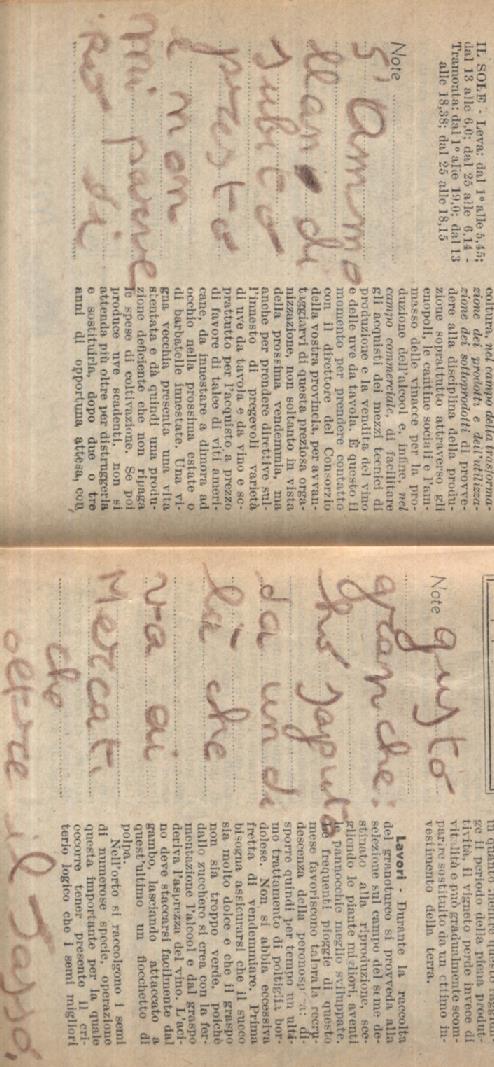 IL SOLE - Leva: dal 1º alle 5,45;
dal 13 alle 6,0; dal 25 alle 6,14 -
Tramonta: dal 1º alle 19,0; dal 13
alle 18,38; dal 25 alle 18,15
Note
S'ammo
llano di
subito
presto
e non
mi parve
di
coltura, nel campo della trasforma-
zione dei prodotti e dell'utilizza-
zione dei sottoprodotti, di provve-
dere alla disciplina della produ-
zione soprattutto attraverso gli
enopoli, le cantine sociali e l'am-
masso delle vinacce per la pro-
duzione dell'alcool e, infine, nel
campo commerciale, di facilitare
gli acquisti dei mezzi tecnici di
produzione e la vendita del vino
e delle uve da tavola. È questo il
momento per prendere contatto
con il direttore del Consorzio
della vostra provincia, per avvan-
taggiarvi di questa preziosa orga-
nizzazione, non soltanto in vista
della prossima vendemmia, ma
anche per prendere direttive sul-
l'innesto di pregevoli varietà
di uve da tavola e da vino e so-
prattutto per l'acquisto a prezzo
di favore di talee di viti ameri-
cane, da innestare a dimora ad
occhio nella prossima estate o
di barbatelle innestate. Una vi-
gna vecchia presenta una vita
stentata e dà quindi una produ-
zione deficiente che non ripaga
le spese di coltivazione. Se poi
produce uve scadenti, non si
attenda più oltre per distruggerla
e sostituirla, dopo due o tre
anni di opportuna attesa, con
Note gusto
granche:
ho saputo
da un di
là che
va ai
Mercati
che
oltre il Sasso,
ge il periodo della piena produt-
tività, il vigneto perde invece di
vitalità e può gradualmente scom-
parire sostituito da un ottimo in-
vestimento della terra.
Lavori - Durante la raccolta
del granoturco si provveda alla
selezione sul campo del seme de-
stinato alla riproduzione, sce-
gliendo le piante migliori, aventi
le pannocchie meglio sviluppate.
Le frequenti pioggie di questo
mese favoriscono talora la recru-
descenza della peronospora: di-
sporre quindi per tempo un ulti-
mo trattamento di poltiglia bor-
dolese. Non si abbia eccessiva
fretta di vendemmiare. Prima
bisogna assicurarsi che il succo
sia molto dolce e che il graspo
non sia troppo verde, poichè
dallo zucchero si crea con la fer-
mentazione l'alcool e dal graspo
deriva l'asprezza del vino. L'aci-
no deve staccarsi facilmente dal
gambo, lasciando attaccato a
quest'ultimo un fiocchetto di
polpa.
Nell'orto si raccolgono i semi
di numerose specie, operazione
questa importante per la quale
occorre tener presente il cri-
terio logico che i semi migliori